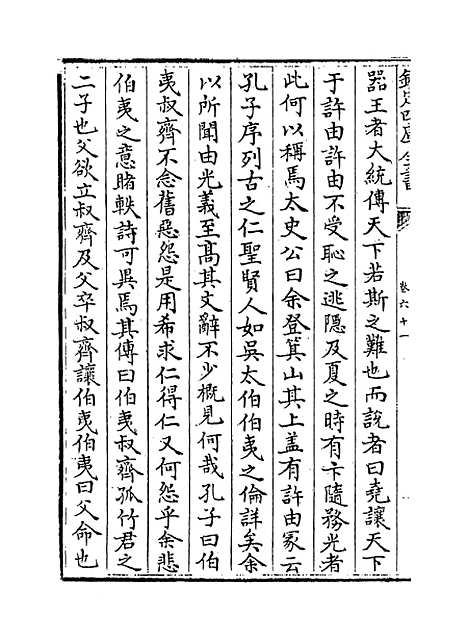 欽定四庫全書
卷六十一
器王者大統傳天下若斯之難也而說者曰堯讓天下
于許由許由不受恥之逃隠及夏之時有卞隨務光者
此何以稱焉太史公曰余登箕山其上盖有許由冢云
孔子序列古之仁聖賢人如吳太伯伯夷之倫詳矣余
以所聞由光義至髙其文辭不少概見何哉孔子曰伯
夷叔齊不念舊惡怨是用希求仁得仁又何怨乎余悲
伯夷之意睹軼詩可異焉其傳曰伯夷叔齊孤竹君之
二子也父欲立叔齊及父卒叔齊讓伯夷伯夷曰父命也